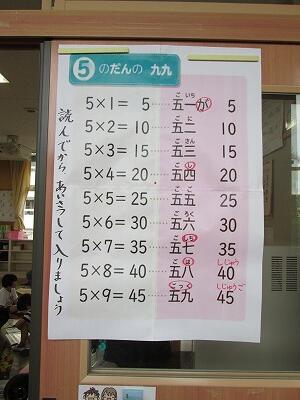 5 のだんの 九九
5×1= 5 五一が 5
5×2=10 五二 10
5×3=15 五三 15
5×4=20 五四 20
5×5=25 五五 25
5×6=30 五六 30
5×7=35 五七 35
5×8=40 五八 40
5×9=45 五九 45
読んでから あいさつして 入りましょう